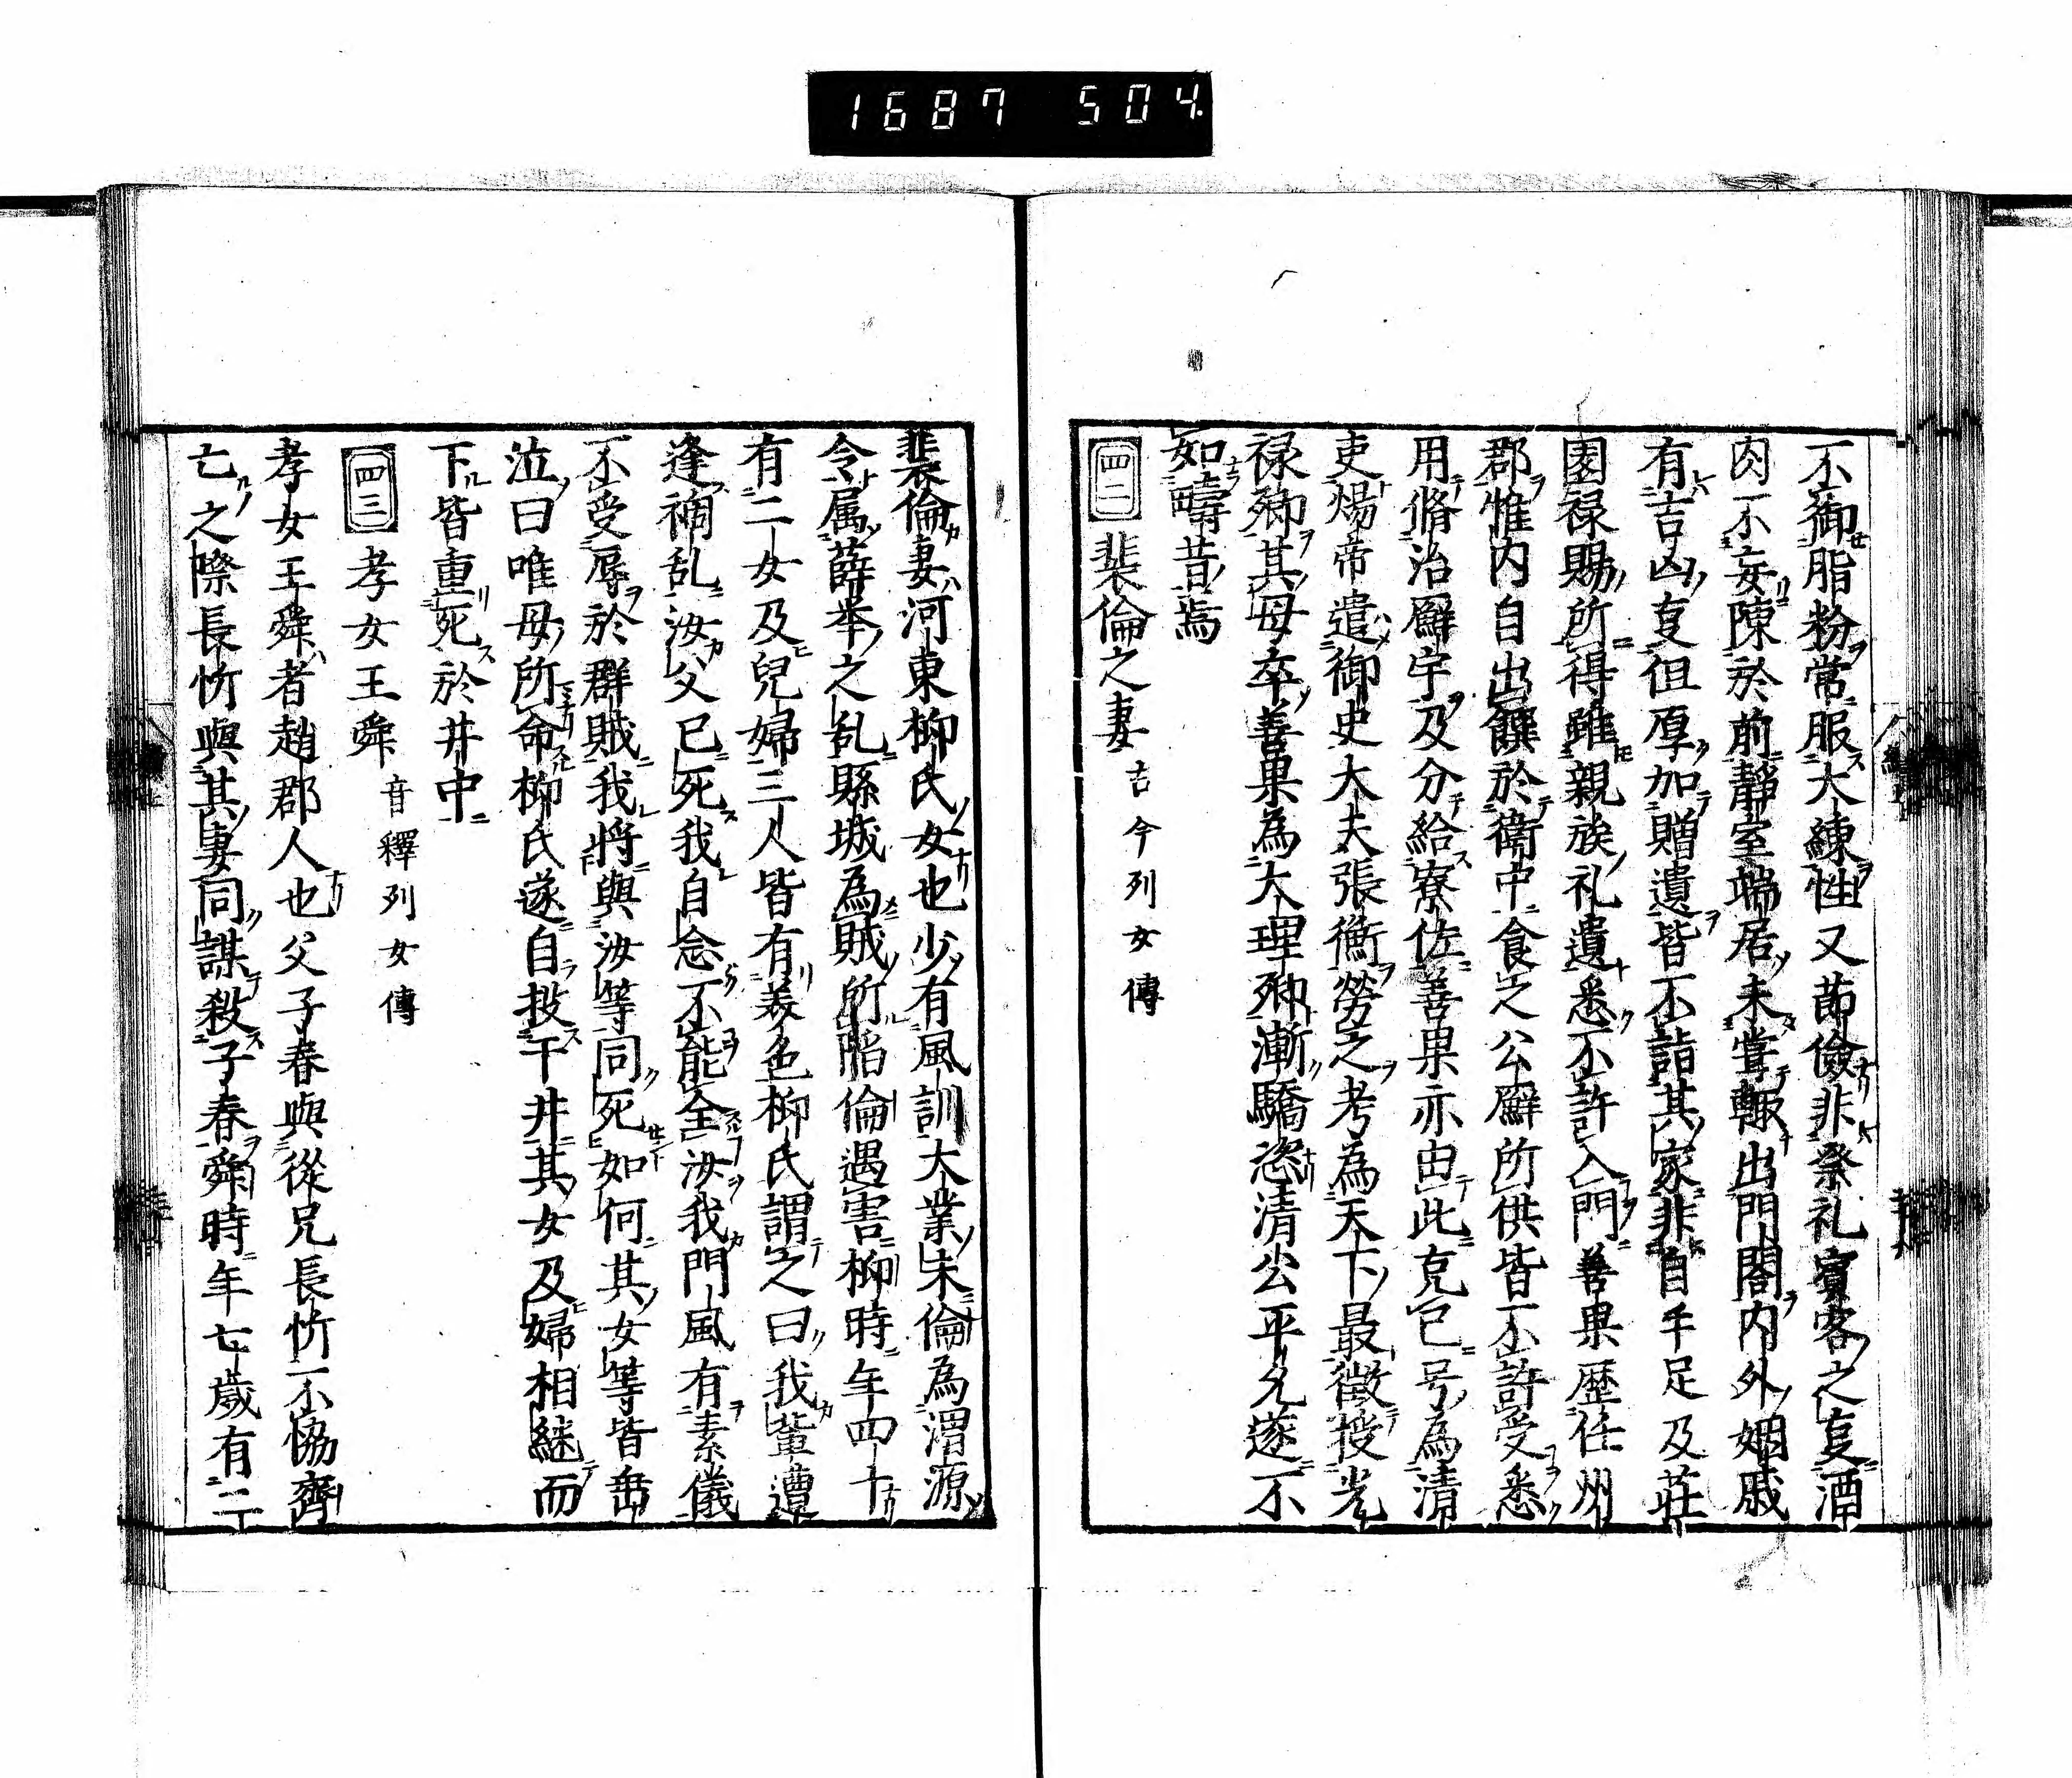 1687 504.
不御脂粉常服大練性又節儉非祭礼賓客之叓酒
肉不妄陳於前靜室端居未嘗輙出門閤内外姻戚
有吉凶叓但厚加贈遺皆不詣其家非自手足及莊
園禄賜所得雖親族礼遺悉不許入門善果歴任州
郡惟内自出饌於衙中食之公廨所供皆不許受悉
用脩治廨宇及分給寮佐善果亦由此克己号為清
吏煬帝遣御史大夫張衡勞之考為天下最徴授光
禄卿其母卒善果為大理卿漸驕恣清公平允遂不
如疇昔焉
四二 裴倫之妻 古今列女傳
裴倫妻河東柳氏女也少有風訓大業末倫為渭源
令属薛举之乱縣城為賊所陷倫遇害柳時年四十
有二女及兒婦三人皆有美色柳氏謂之曰我輩遭
逢禍乱汝父已死我自念不能全汝我門風有素儀
不受辱於群賊我將與汝等同死如何其女等皆垂
泣曰唯母所命柳氏遂自投于井其女及婦相継而
下皆重死於井中
四三 孝女王舜 音釋列女傳
孝女王舜者趙郡人也父子春與從兄長忻不恊齊
亡之際長忻與其妻同謀殺子春舜時年七歳有二